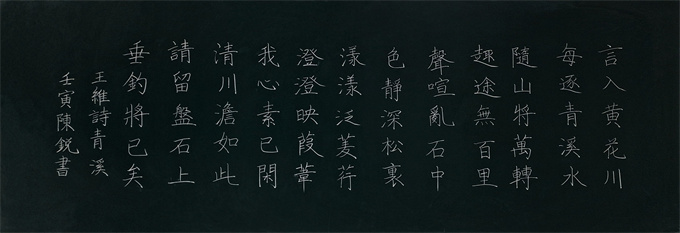 言入黄花川
每逐青溪水
隨山將萬轉
趣途無百里
聲喧亂石中
色靜深松裏
漾漾泛菱荇
澄澄映葭葦
我心素已閑
清川澹如此
請留盤石上
垂釣將已矣
王維詩青溪
壬寅陳銳書